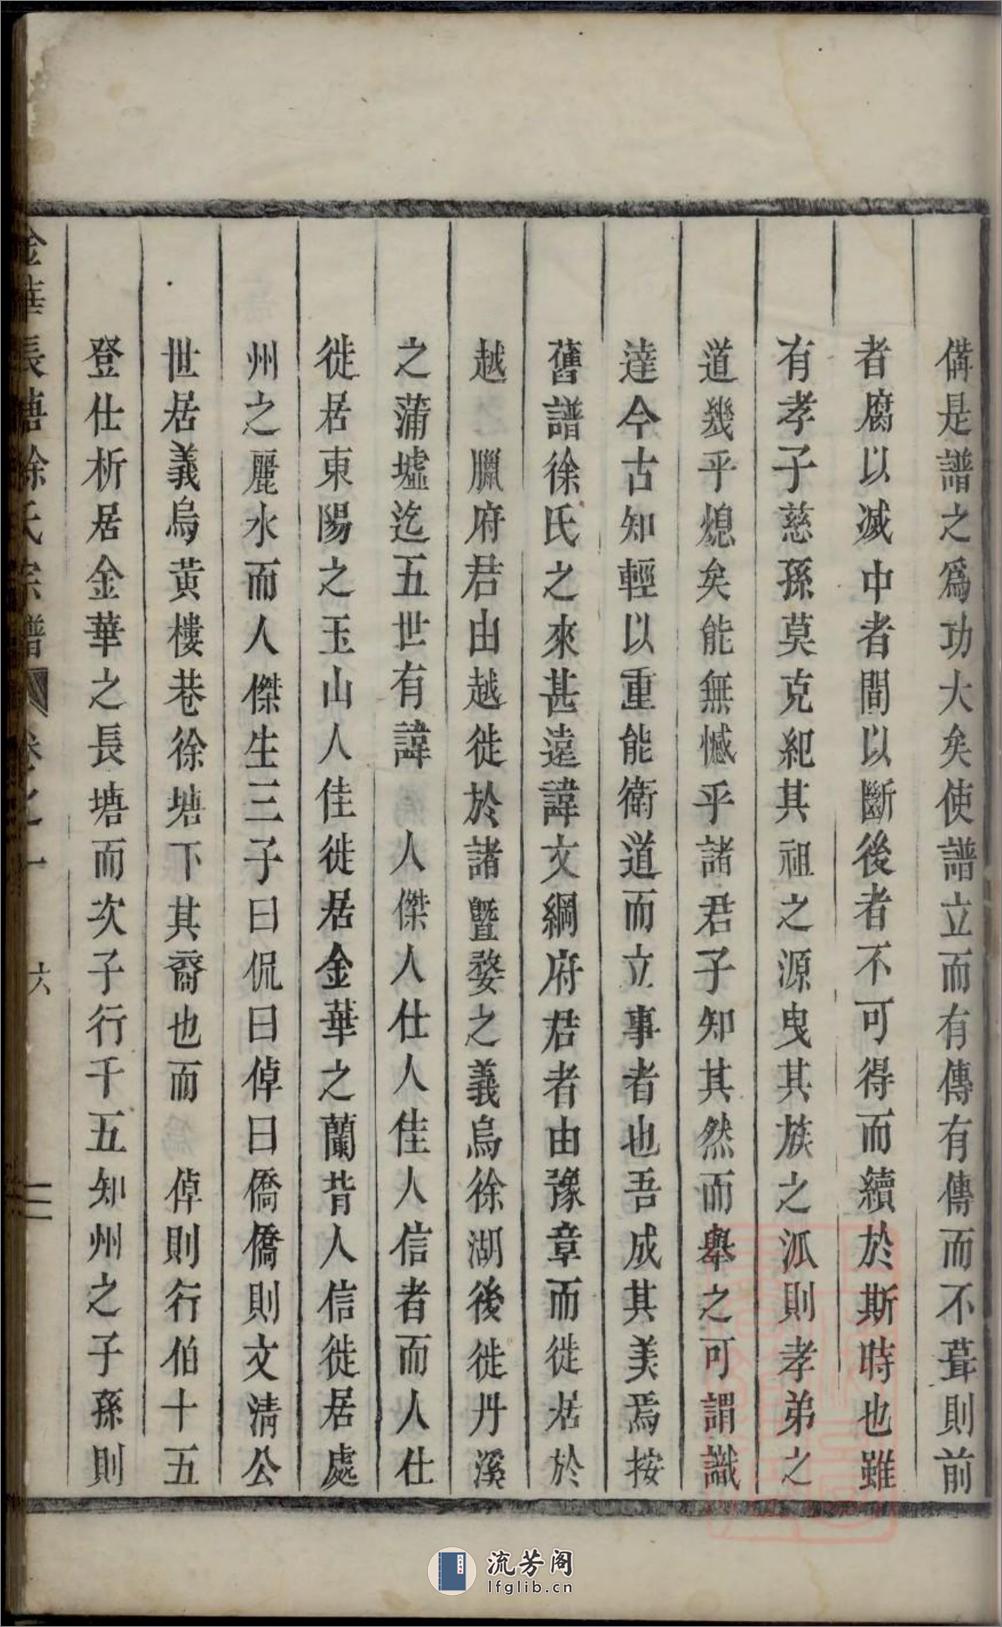 備是譜之爲功大矣使譜立而有傳有傳而不葺則前
者腐以滅中者間以斷後者不可得而續於斯時也雖
有孝子慈孫莫克紀其祖之源曳其族之泒則孝弟之
道幾乎熄矣能無憾乎諸君子知其然而舉之可謂識
達今古知輕以重能衛道而立事者也吾成其美焉按
舊譜徐氏之來甚遠諱文綱府君者由豫章而徙居於
越 臘府君由越徙於諸曁婺之義烏徐湖後徙丹溪
之蒲墟迄五世有諱 人傑人仕人佳人信者而人仕
徙居東陽之玉山人佳徙居金華之蘭昔人信徙居處
州之麗水而人傑生三子曰侃曰倬曰僑僑則文清公
世居義烏黃樓巷徐塘下其裔也而 倬則行伯十五
登仕析居金華之長塘而次子行千五知州之子孫則
金華長塘徐氏宗譜 卷之一 六
流芳阁
lfglib.cn